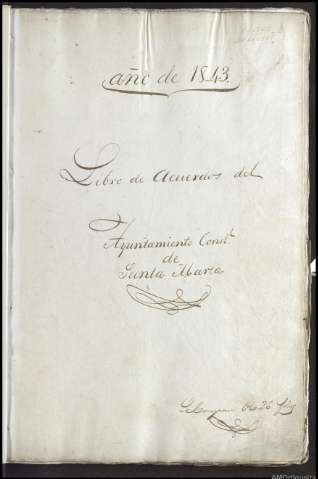 año de 1843.
Libro de Acuerdos del
Ayuntamiento Constl.
de
Santa Marta
AMOrtigueira